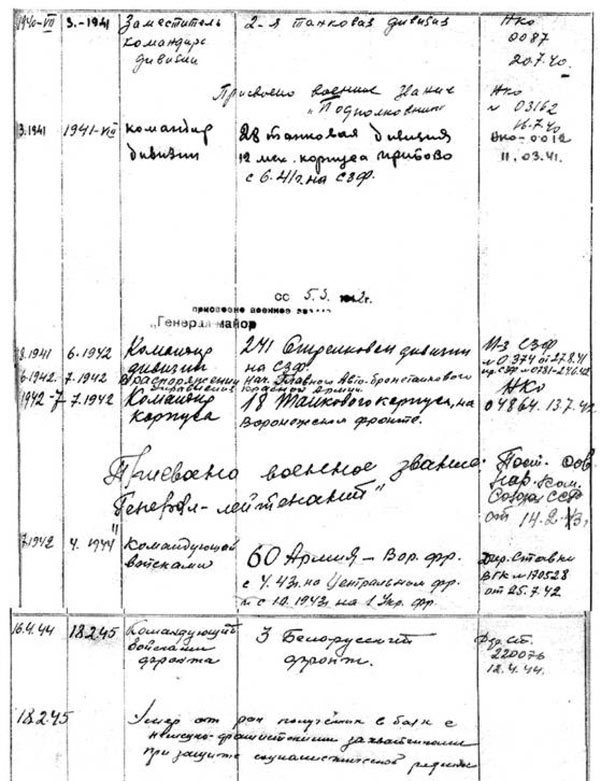 1940-VII 3.-1941 Заместитель 2-я танковая дивизия НКО
командира 0087
дивизии 20.7.40.
Присвоено военное звание НКО
"Подполковник" № 03162
16.7.40
3.1941 1941-VIII командир 28 танковая дивизия НКО-0012
дивизии 12 мех. корпуса Прибово 11.03.41.
с 6.41г. на СЗФ.
сс 5.3. 1942г.
присвоено военное звание
"Генерал-майор
8.1941 6.1942 Командир 241 Стрелковой дивизии Из СЗФ
дивизии на СЗФ. № 0374 от 27.8.41
6.1942. 7.1942 В распоряжении Нач. Главного Авто-бронетанкового
управления Красной Армии. НКО
1942-7 7.1942 Командир 18 Танкового корпуса, на 04864. 13.7.42
корпуса Воронежском фронте.
Присвоено военное звание Пост. Сов.
"Генерал-лейтенант" Нар. Ком.
Союза ССР
от 14.2.43г.
7.1942 4.1944 Командующий 60 Армия – Вор. фр. Дир. Ставки
войсками с 4.43г. на Центральном фр. ВГК № 170528
и с 10.1943г. на 1 Укр. фр. от 25.7.42
16.4.44 18.2.45 Командующий 3 Белорусский
войсками фронт. 220076
фронта 12.4.44.
18.2.45 Умер от ран полученных в боях с
немецко-фашистскими захватчиками
при защите социалистической родины